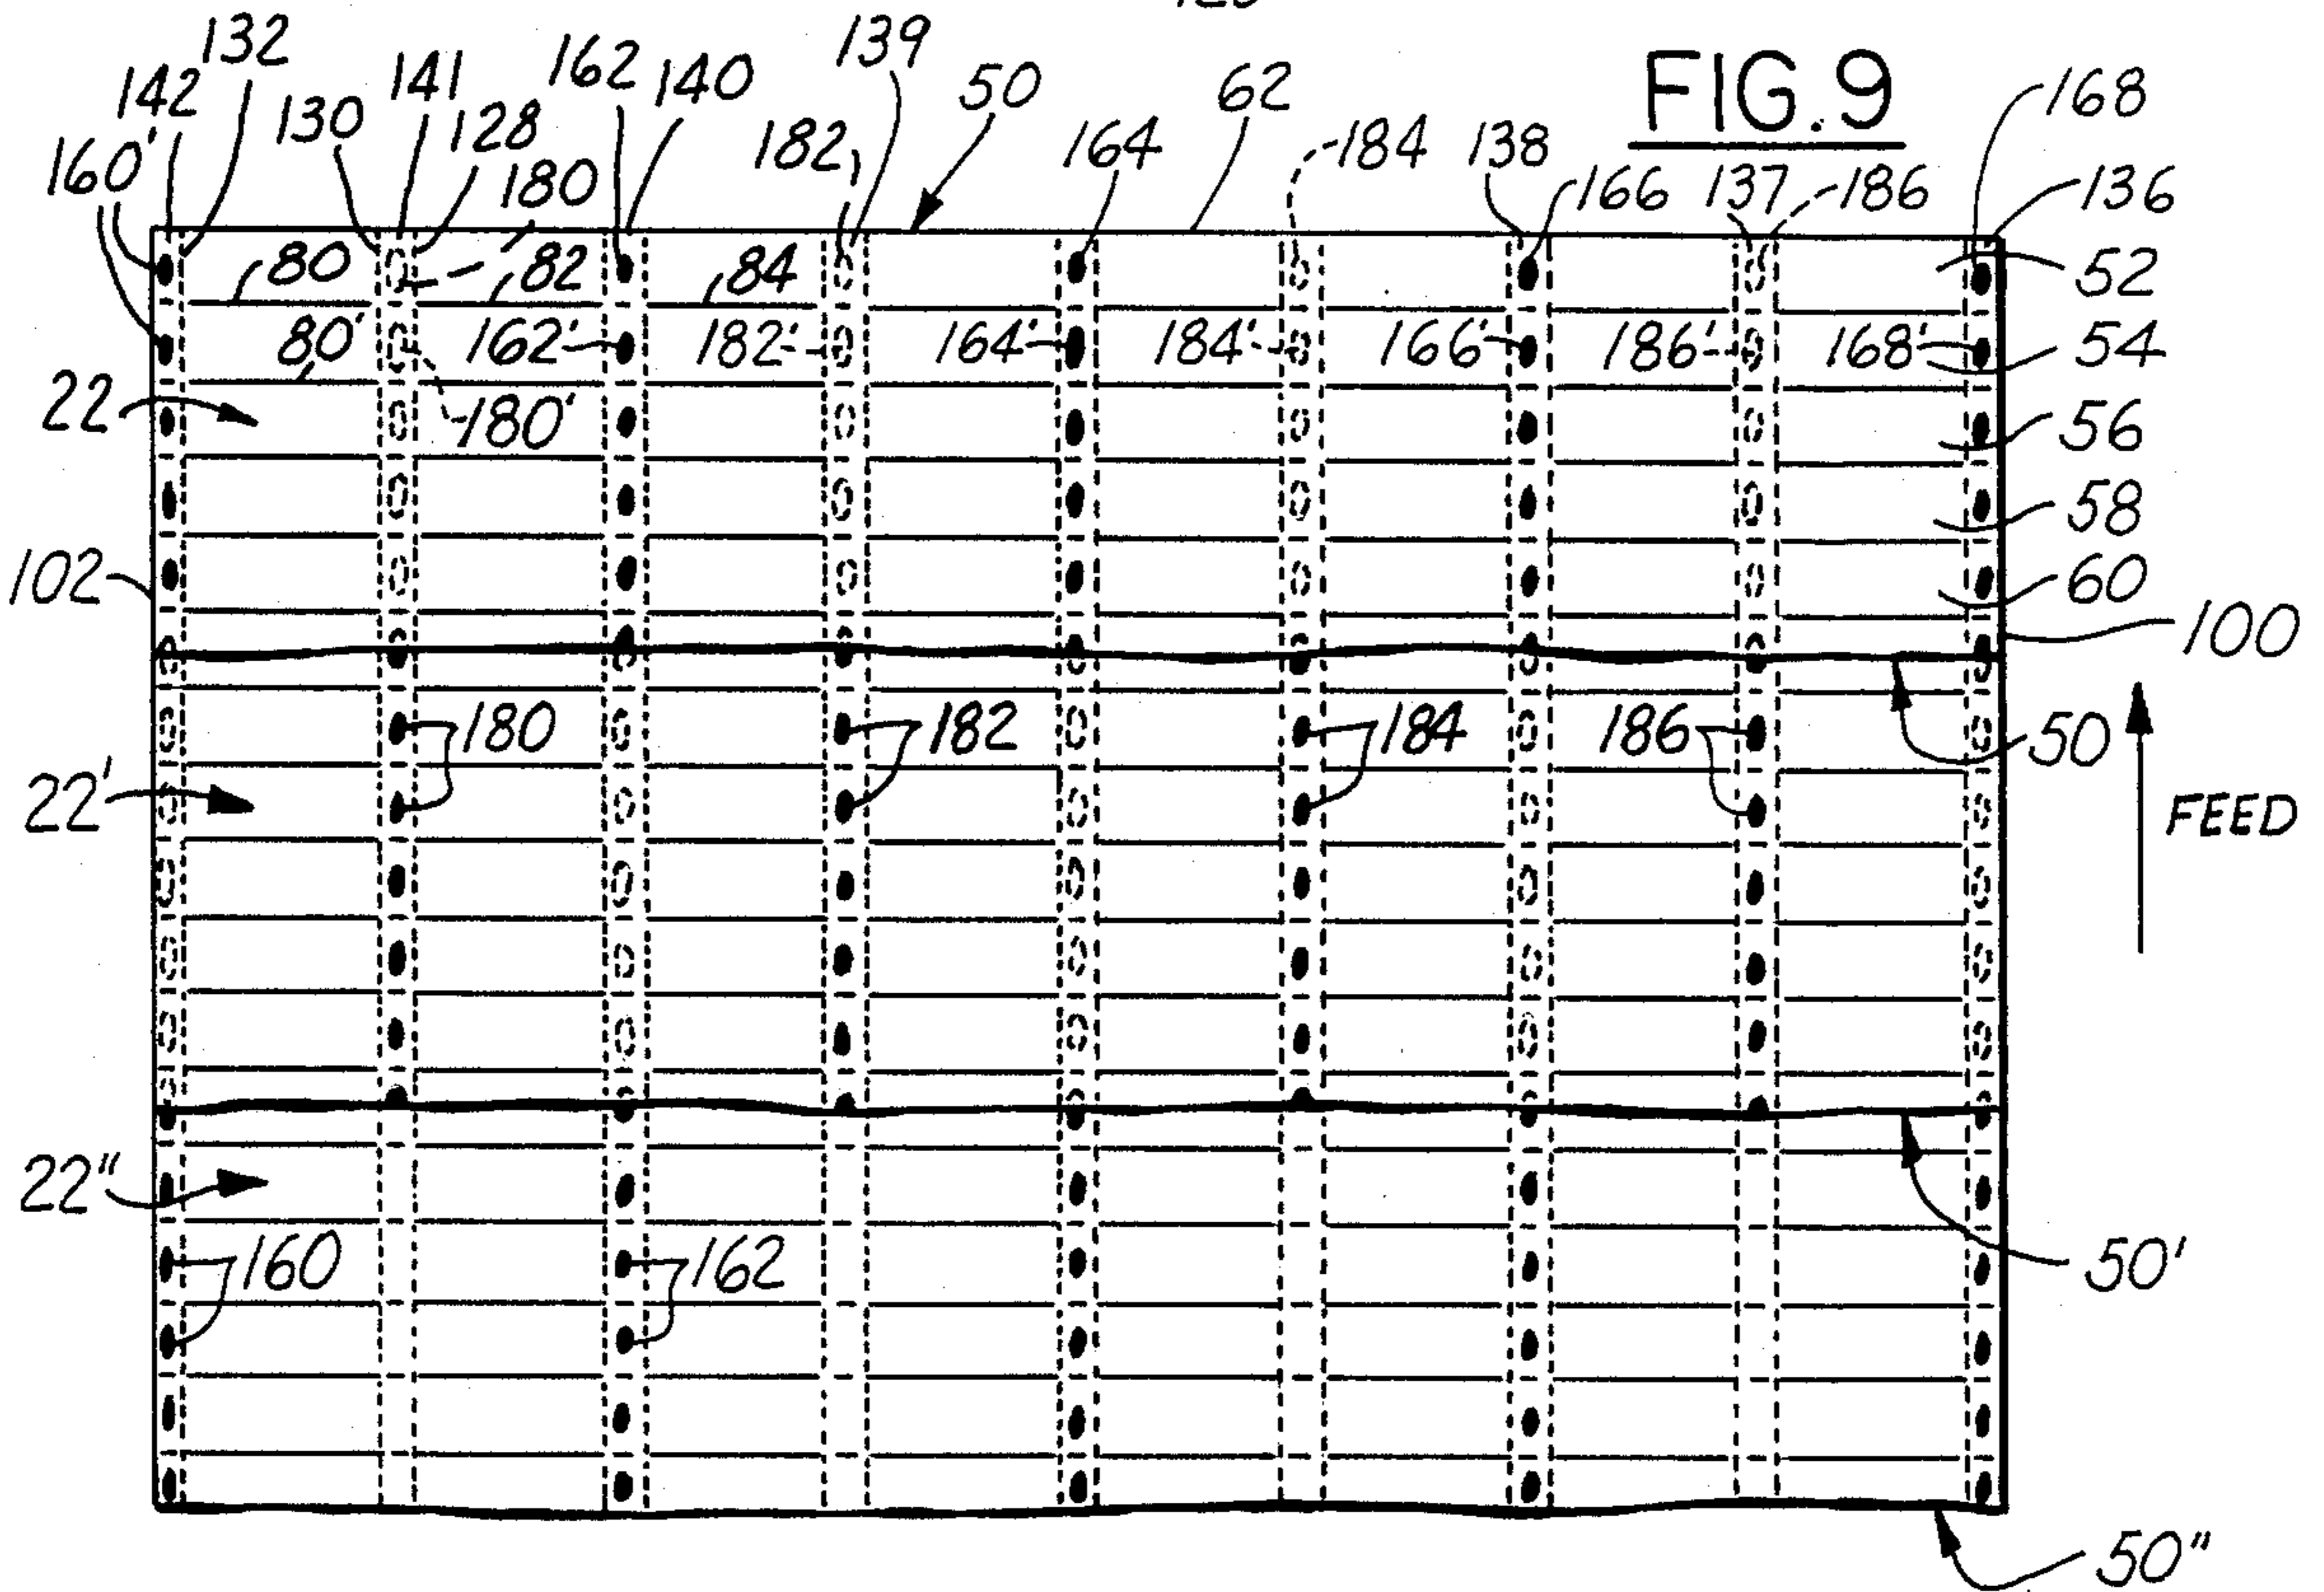 FIG. 9
132
139
142
141
162
140
50
62
168
160'
130
128
182
164
184
138
180
166
137
186
136
80
82
84
52
80'
162'
182'
164'
184'
166'
186'
168'
54
22
180'
56
58
102
60
100
180
182
184
186
50
22'
FEED
22"
160
162
50'
50"